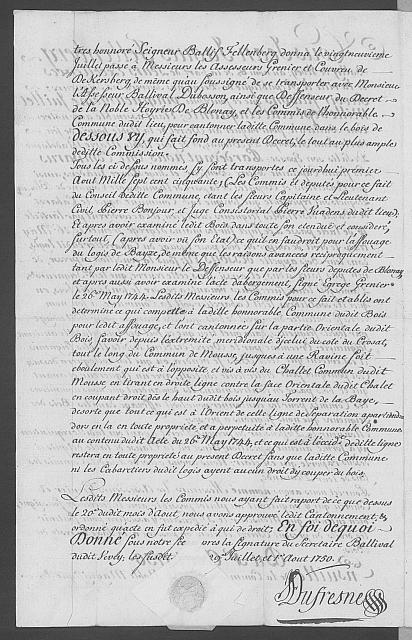 tres honnoré Seigneur Ballif Fellenberg donna le vingtneuvieme
Juillet passé à Messieurs les Assesseurs Grenier et Couvreu de
DeKersberg, de même qu'au soussigné de se transporter avec Monsieur
l'Assesseur Ballival Dubosson, ainsi que Deffenseur du Decret
de la Noble Hoyrie De Blonay, et les Commis de l'honnorable
Commune dudit lieu, pour cantonner laditte Commune dans le bois de
dessous sy, qui fait fond au present Decret, le tout au plus ample
deditte Commission.
Tous les ci dessus nommés s'y sont transportés ce jourdhuy premier
Aout Mille sept cent cinquante; (Les Commis et deputés pour ce fait
du Conseil deditte Commune, etant les sieurs Capitaine et Lieutenant
Civil Pierre Bonjour, et Juge Consistorial Pierre dudit lieu);
Et après avoir examiné ledit Bois dans toute son etendue et consideré
surtout, (après avoir vû son etat) ce qu'il en faudroit pour l'affouage
du logis de Bayze, de même que les raisons avancées reciproquement
tant par ledit Monsieur le Deffenseur que par les sieurs deputés de Blonay
et après aussi avoir examiné l'acte d'abergement, signé Egrege Grenier
le 26e May 1744. Lesdits Messieurs les Commis pour ce fait etablis ont
determiné ce qui compette à laditte honnorable Commune dudit Bois
pour ledit affouage, et l'ont cantonnée sur la partie Orientale dudit
Bois, savoir depuis l'extremité meridionale d'icelui du coté du Crosat,
tout le long du Commun de Mousse, jusques à une Ravine soit
eboulement qui est à l'opposite et vis à vis du Challet Commun dudit
Mousse, en tirant en droite ligne contre la face Orientale dudit Chalet
en coupant droit dès le haut dudit bois jusqu'au Torrent de la Baye,
desorte que tout ce qui est à l'Orient de celle ligne de separation apartiendra
dors en la en toute proprieté et à perpetuité à laditte honnorable Commune
au contenu dudit Acte du 26e May 1744, et ce qui est à l'occident de ditte ligne
restera en toute proprieté au present Decret sans que laditte Commune
ni les Cabartiers dudit logis ayent aucun droit d'y couper du bois.
Lesdits Messieurs les Commis nous ayant fait raport de ce que dessus
le 20e dudit mois d'Aout, nous avons approuvé ledit Cantonnement, &
ordonné qu'acte en fut expedié à qui de droit; En foi dequoi
Donné sous notre la signature du Secretaire Ballival
dudit Vevey; les susdits 29e Juillet et 1er Aout 1750.
Dufresne